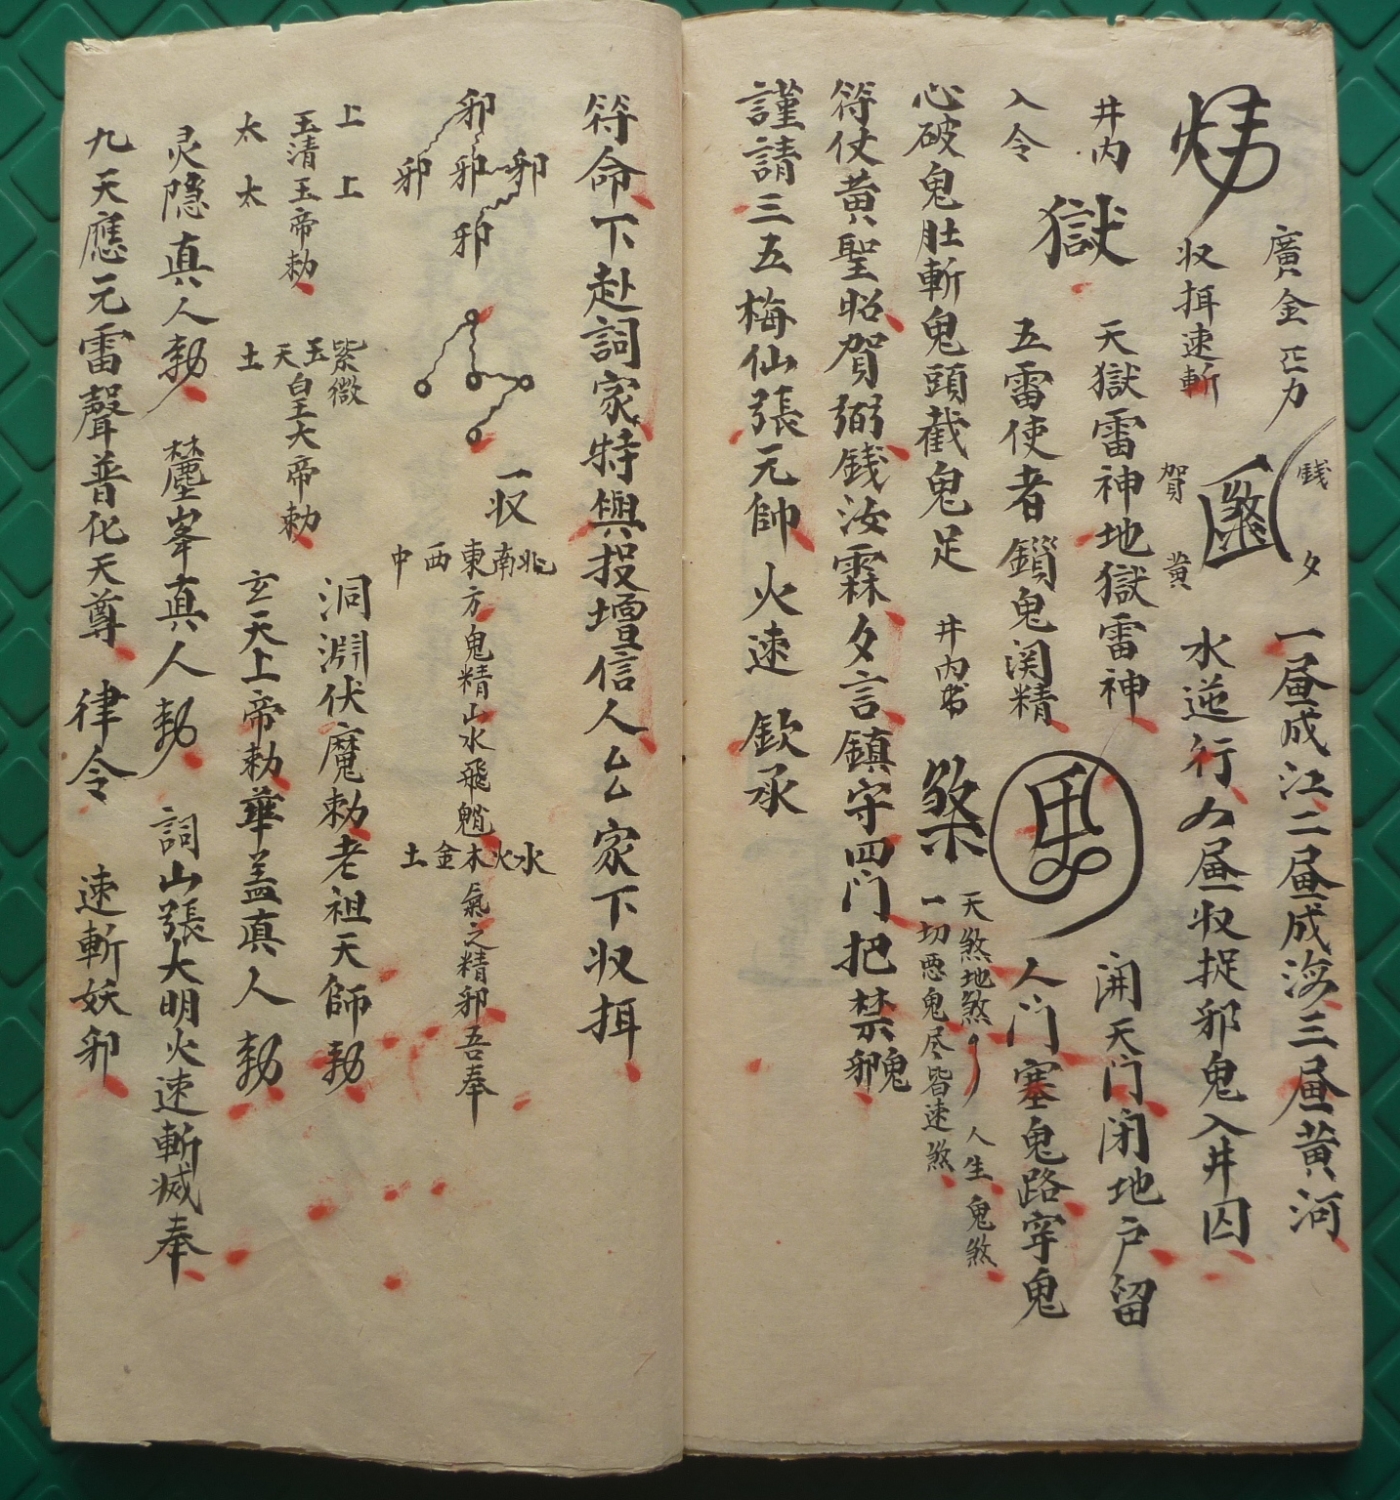 廣金
力
收挕速斬
钱
夕
賀
黄
一昼成江二昼成海三昼黄河
水逆行
昼收捉邪鬼入井囚
井内
獄
天獄雷神地獄雷神
開天门闭地户留
人门塞鬼路牢鬼
入令
五雷使者鎖鬼関精
心破鬼肚斬鬼頭截鬼足
井内書
煞
天煞地煞
人生
鬼煞
一切悪鬼尽皆速煞
符仗黄聖昭賀弼銭汝霖夕言鎮守四门把禁
鬼
邪
謹請三五梅仙張元帥
火速
欽承
符命下赴詞家特與投壇信人厶厶家下收挕
邪
邪
邪
邪
邪
一收
北南東西中
方鬼精山水飛魈
水火木金土
氣之精邪吾奉
上
上
玉清玉帝勅
太
太
紫微
玉
天
土
皇大帝勅
洞淵伏魔勅老祖天師勑
玄天上帝勅華盖真人
勑
灵隐真人勑
峯真人勑
詞山張大明火速斬滅奉
九天應元雷聲普化天尊
律令
速斬妖邪